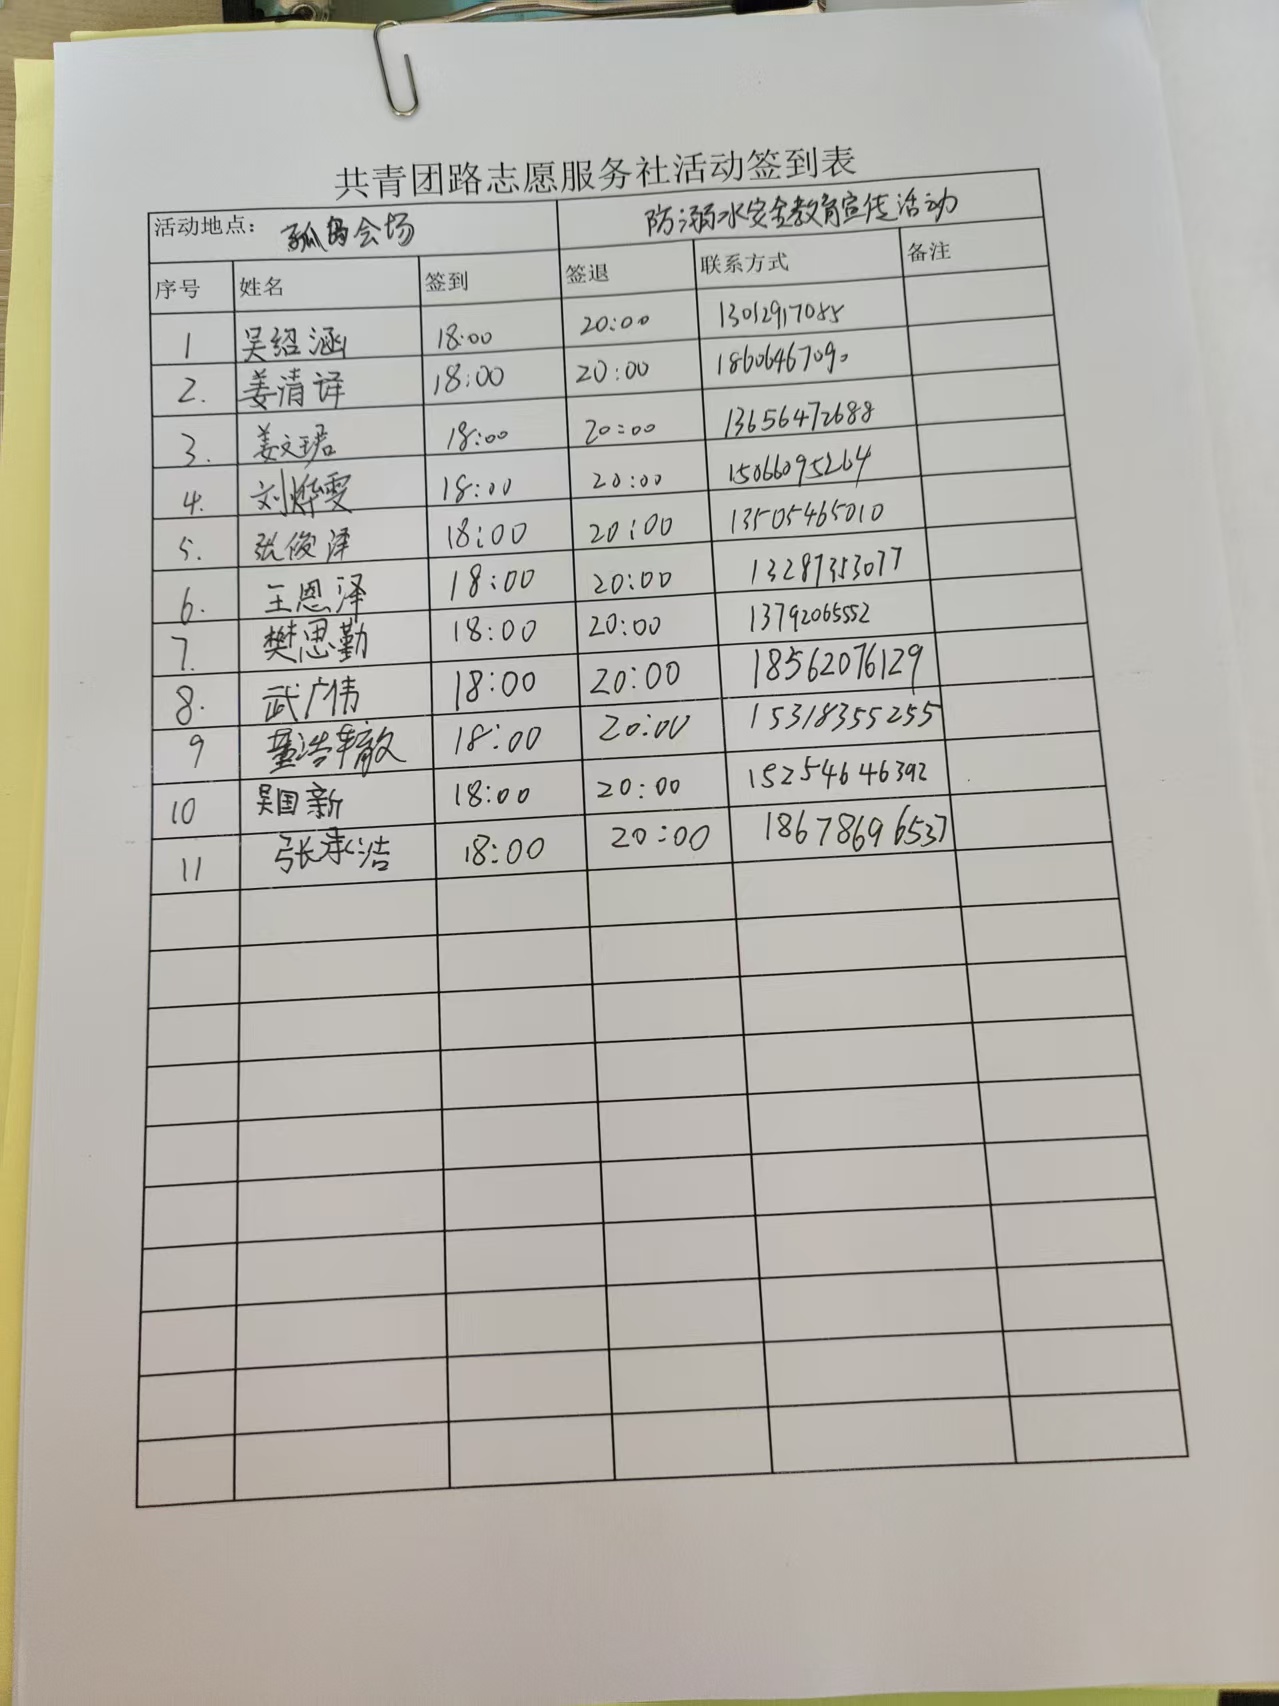 共青团路志愿服务社活动签到表
活动地点： 孤岛会场 防溺水安全教育宣传活动
序号 姓名 签到 签退 联系方式 备注
1 吴绍涵 18:00 20:00 13012917085
2. 姜清译 18:00 20:00 18606467090
3. 姜文珺 18:00 20:00 13656472688
4. 刘烨雯 18:00 20:00 15066095264
5. 张俊泽 18:00 20:00 13505465010
6. 王恩泽 18:00 20:00 13287353077
7. 樊思勤 18:00 20:00 13792065552
8. 武广伟 18:00 20:00 18562076129
9 董浩 18:00 20:00 15318355255
10 吴国新 18:00 20:00 15254646392
11 张承洁 18:00 20:00 18678696537